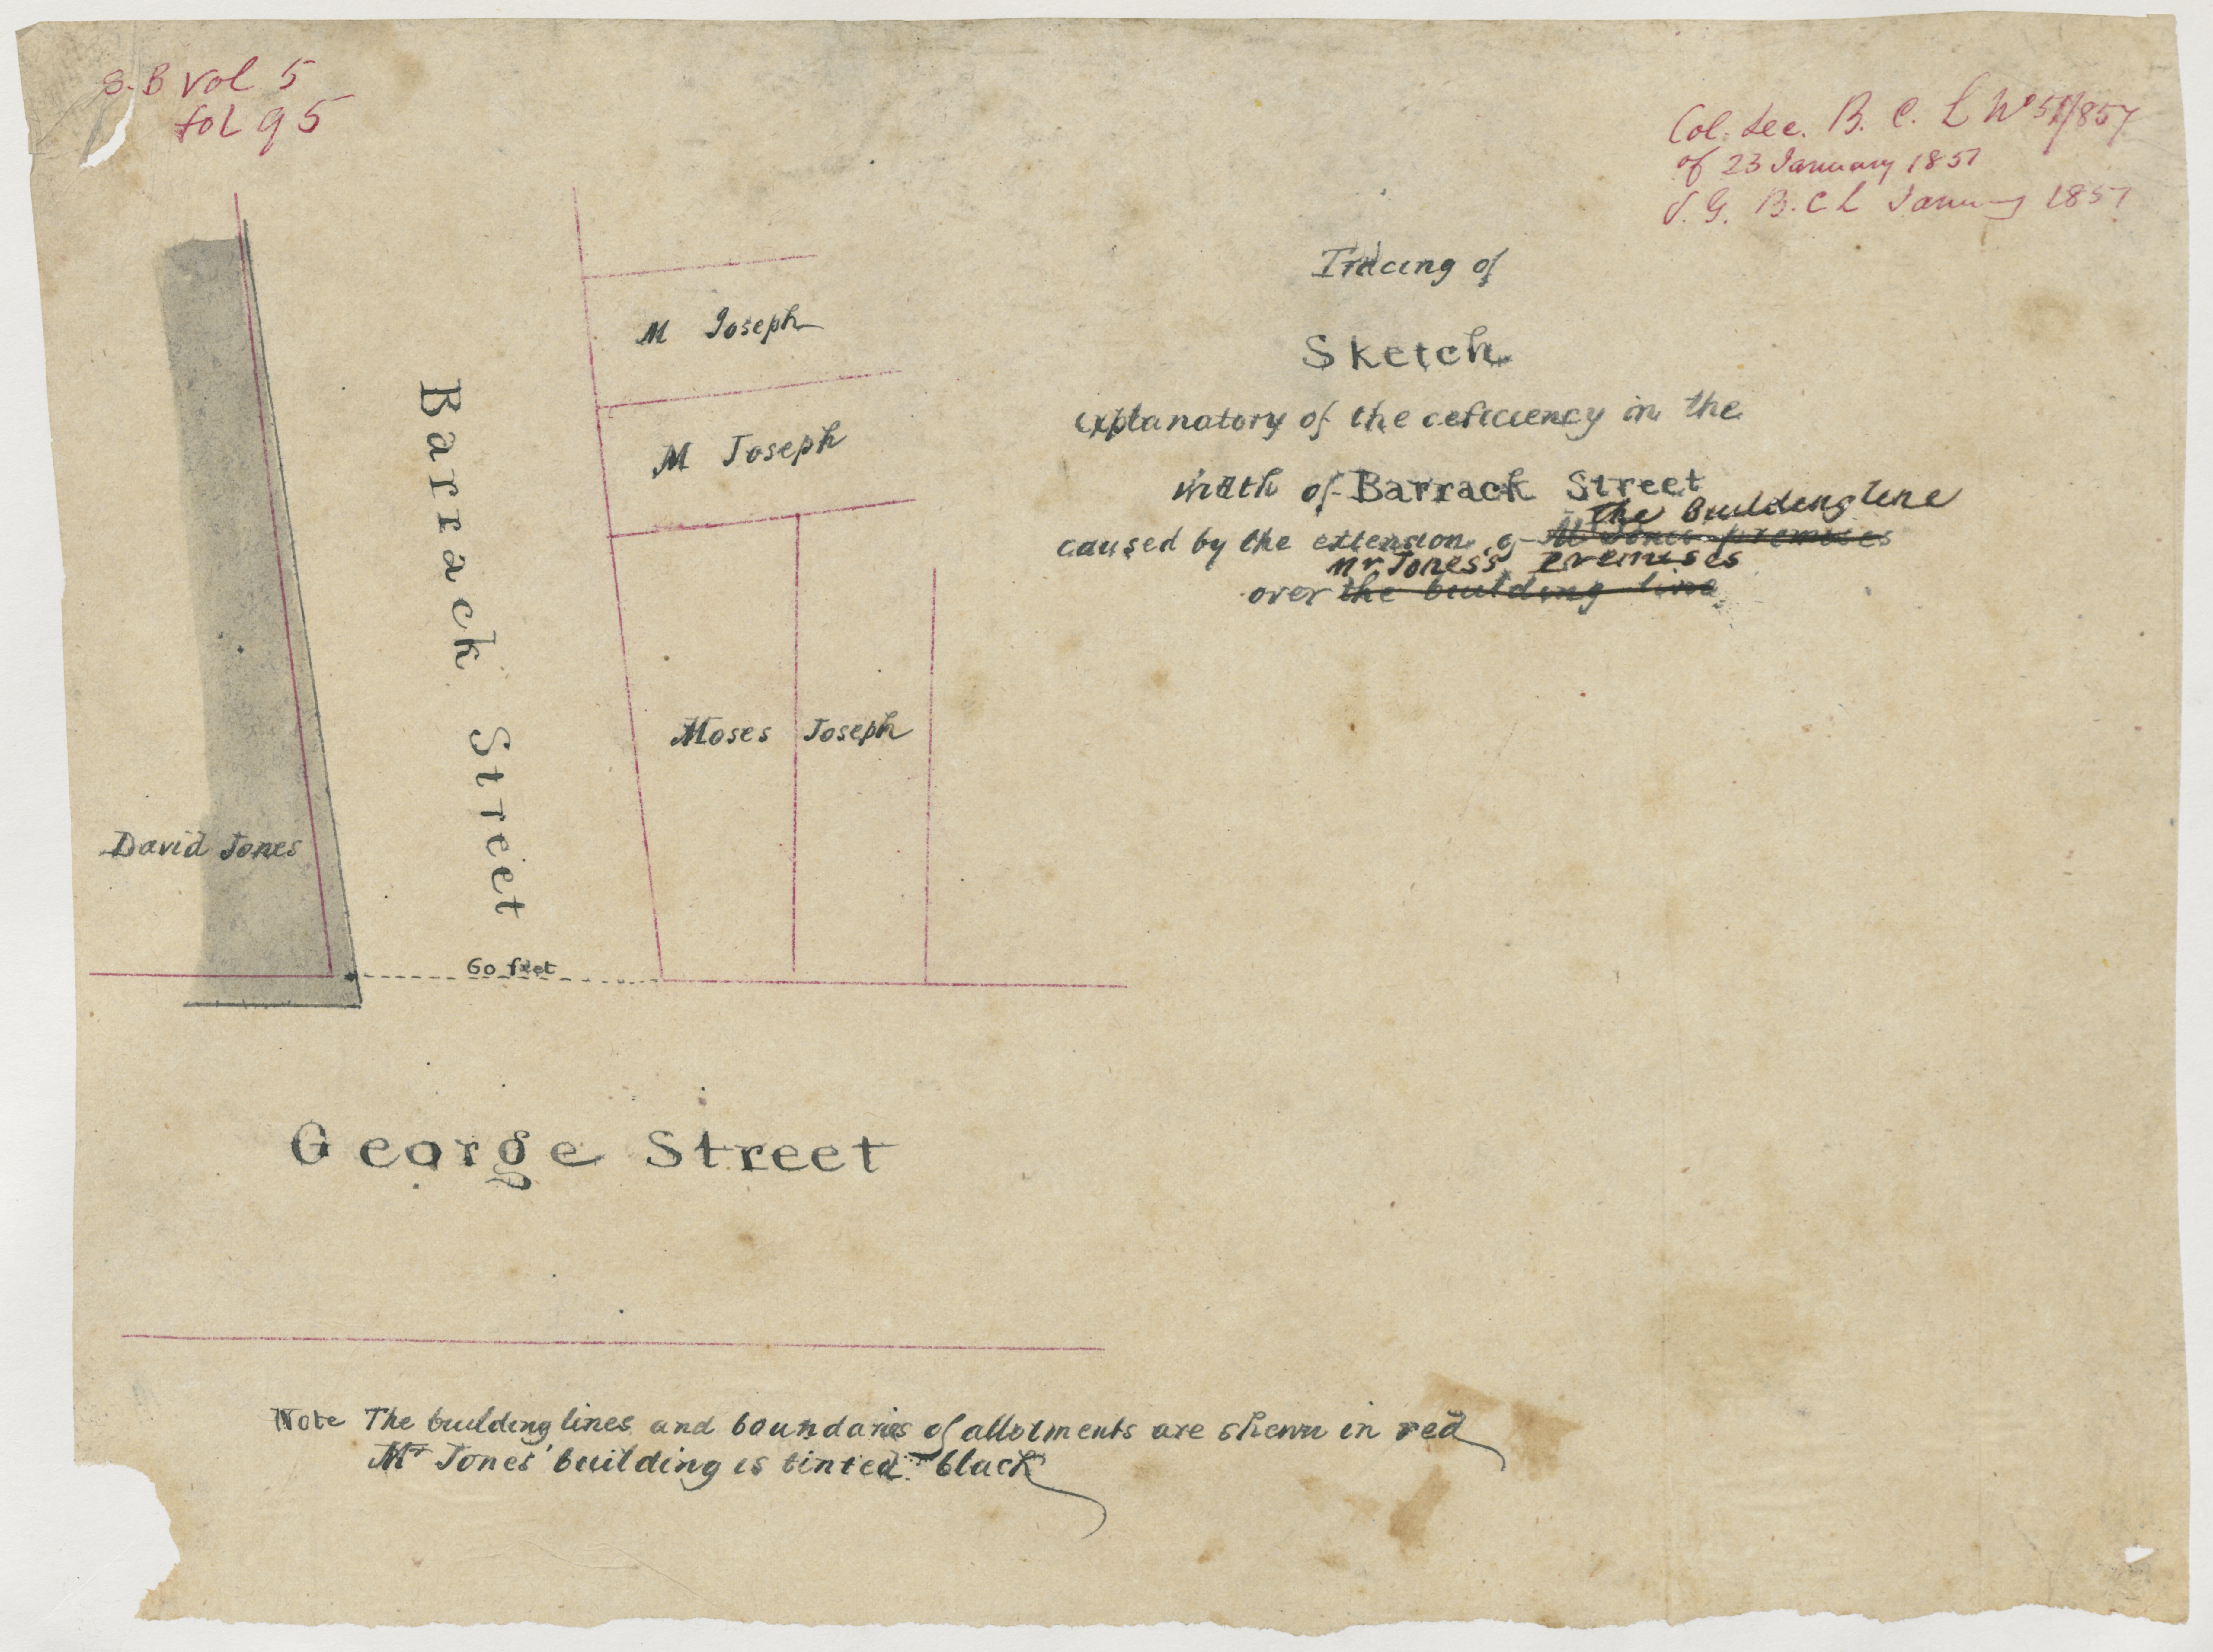 S.B Vol 5
fol 95
Col. Sec. B. C. L No 51/857
of 23 January 1851
S. G. B. C L January 1851
Tracing of
Sketch
explanatory of the deficiency in the
width of Barrack Street
the Building line
caused by the extension of Mr Jones premises
Mr Jones's premises
over the building line
M Joseph
M Joseph
Barrack Street
Moses Joseph
David Jones
60 feet
George Street
Note The building lines and boundaries of allotments are shewn in red
Mr Jones' building is tinted black